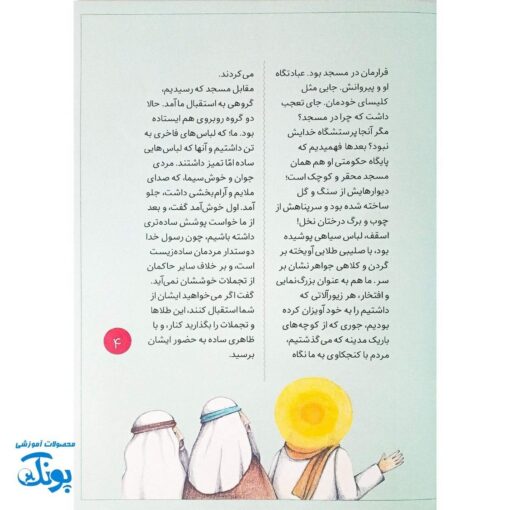 قرارمان در مسجد بود. عبادتگاه
او و پیروانش. جایی مثل
کلیسای خودمان. جای تعجب
داشت که چرا در مسجد؟
مگر آنجا پرستشگاه خدایش
نبود؟ بعدها فهمیدیم که
پایگاه حکومتی او هم همان
مسجد محقر و کوچک است؛
دیوارهایش از سنگ و گل
ساخته شده بود و سرپناهش از
چوب و برگ درختان نخل!
اسقف، لباس سیاهی پوشیده
بود، با صلیبی طلایی آویخته بر
گردن و کلاهی جواهر نشان بر
سر. ما هم به عنوان بزرگ‌نمایی
و افتخار، هر زیورآلاتی که
داشتیم را به خود آویزان کرده
بودیم، جوری که از کوچه‌های
باریک مدینه که می‌گذشتیم،
مردم با کنجکاوی به ما نگاه
می‌کردند.
مقابل مسجد که رسیدیم،
گروهی به استقبال ما آمد. حالا
دو گروه روبروی هم ایستاده
بود. ما؛ که لباس‌های فاخری به
تن داشتیم و آنها که لباس‌هایی
ساده امّا تمیز داشتند. مردی
جوان و خوش‌سیما، که صدای
ملایم و آرام‌بخشی داشت، جلو
آمد. اول خوش‌آمد گفت، و بعد
از ما خواست پوشش ساده‌تری
داشته باشیم، چون رسول خدا
دوستدار مردمان ساده‌زیست
است، و بر خلاف سایر حاکمان
از تجملات خوششان نمی‌آید.
گفت اگر می‌خواهید ایشان از
شما استقبال کنند، این طلاها
و تجملات را بگذارید کنار، و با
ظاهری ساده به حضور ایشان
برسید.
۴
محصولات آموزشی
پونک